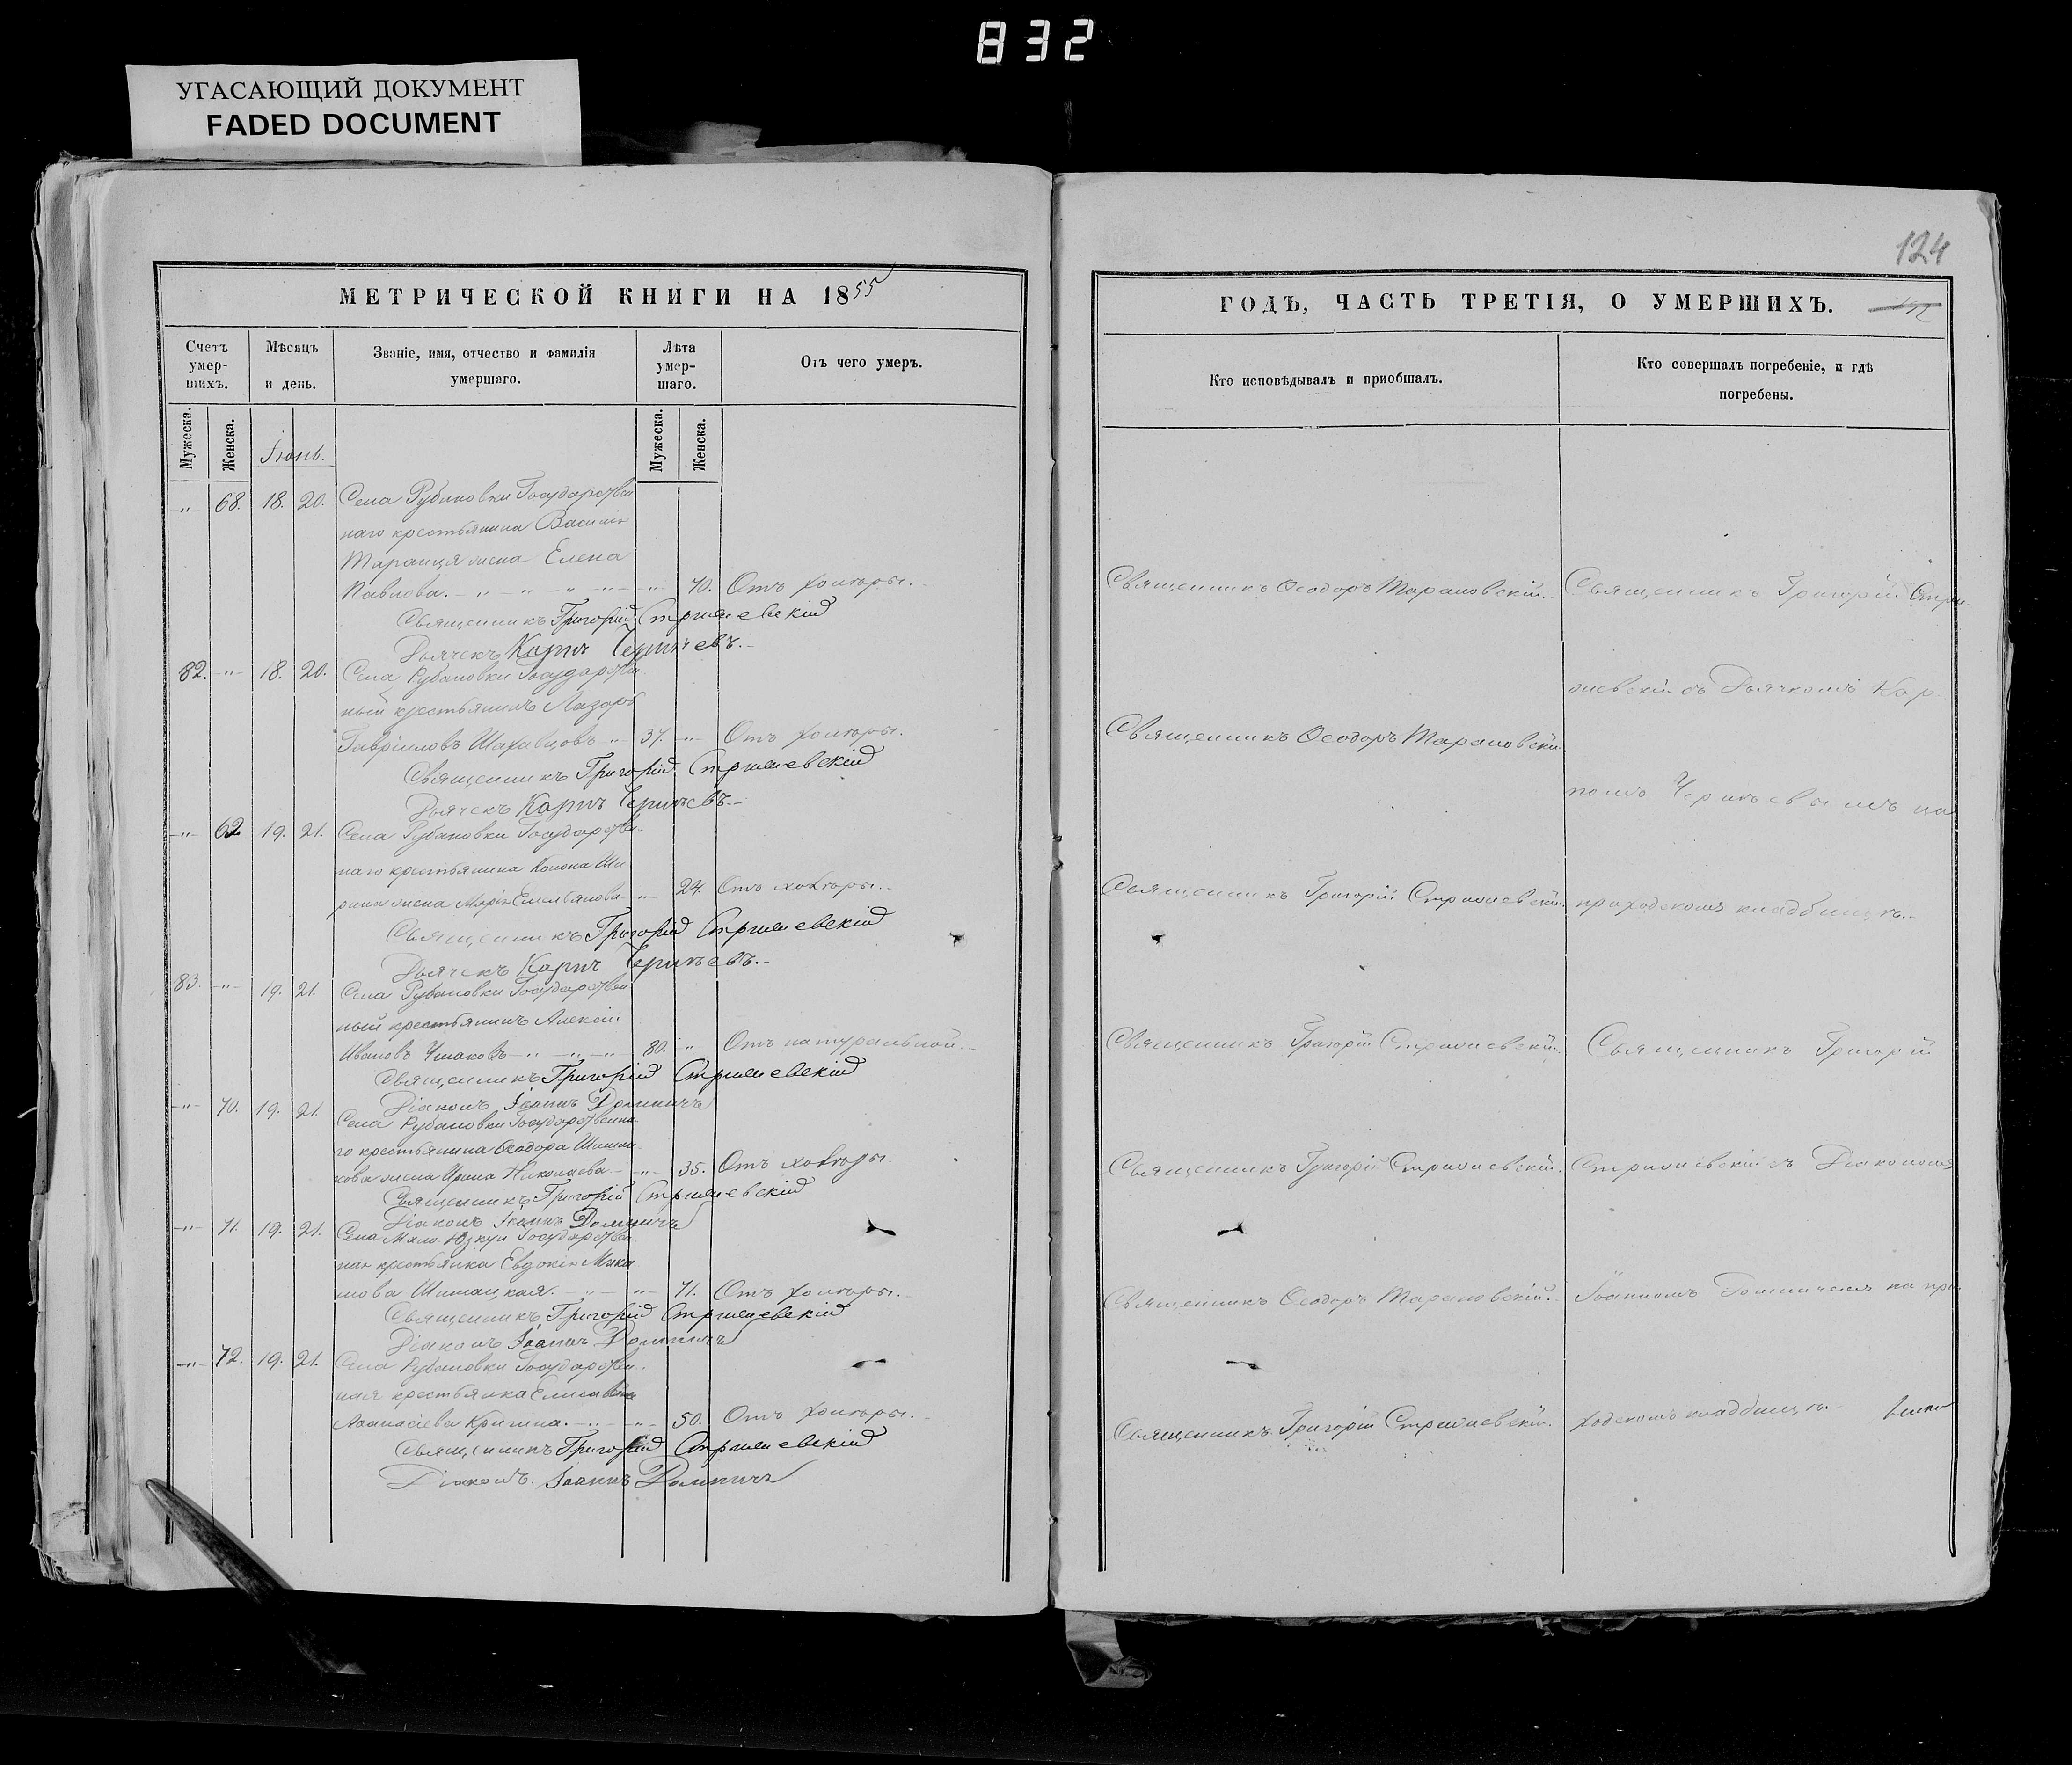 832
УГАСАЮЩИЙ ДОКУМЕНТ
FADED DOCUMENT
124
МЕТРИЧЕСКОЙ КНИГИ НА 1855
ГОДЪ, ЧАСТЬ ТРЕТІЯ, О УМЕРШИХЪ.
Счетъ умер-шихъ.
Мѣсяцъ и день.
Званіе, имя, отчество и фамилія умершаго.
Лѣта умер-шаго.
Отъ чего умеръ.
Кто исповѣдывалъ и пріобшалъ.
Кто совершалъ погребеніе, и гдѣ погребены.
Мужеска.
Женска.
Іюнь.
Мужеска.
Женска.
-"- 68. 18. 20. Села Рубановки Государствен
наго крестьянина Василія
Таранця жена Елена
Павлова. -"- 70. Отъ холеры. Священникъ Ѳеодоръ Тарановскій. Священникъ Григорій Стри-
Священникъ Григорій Стрижевскій
Дьячекъ Карпъ Черничевъ.
82. -"- 18. 20. Села Рубановки Государствен
ный крестьянинъ Лазарь
жевскій съ Дьячкомъ Кар-
Гавріиловъ -"- 37. -"- Отъ холеры. Священникъ Ѳеодоръ Тарановскій.
Священникъ Григорій Стрижевскій
Дьячекъ Карпъ
помъ на
-"- 62 19. 21. Села Рубановки Государствен
наго крестьянина Конона Ши
рина жена Марія Емельянова -"- 24. Отъ холеры. Священникъ Григорій Стрижевскій. приходскомъ кладбищѣ.
Священникъ Григорій Стрижевскій
Дьячекъ Карпъ
83. -"- 19. 21. Села Рубановки Государствен
ный крестьянинъ Алексій
Ивановъ -"- 80. " Отъ натуральной. Священникъ Григорій Стрижевскій. Священникъ Григорій
Священникъ Григорій Стрижевскій
Діаконъ Іоаннъ
-"- 70. 19. 21. Села Рубановки Государственна
го крестьянина Ѳеодора
жена Ирина Николаева -"- 35. Отъ холеры. Священникъ Григорій Стрижевскій. Стрижевскій съ Діакономъ
Священникъ Григорій Стрижевскій
Діаконъ Іоаннъ
-"- 71. 19. 21. Села Государствен
ная крестьянка Евдокія
-"- 71. Отъ холеры. Священникъ Ѳеодоръ Тарановскій. Іоанномъ на при-
Священникъ Григорій Стрижевскій
Діаконъ Іоаннъ
-"- 72. 19. 21. Села Рубановки Государствен
ная крестьянка Елисавета
Аѳанасіева -"- 50. Отъ холеры. Священникъ Григорій Стрижевскій. ходскомъ кладбищѣ.
Священникъ Григорій Стрижевскій
Діаконъ Іоаннъ